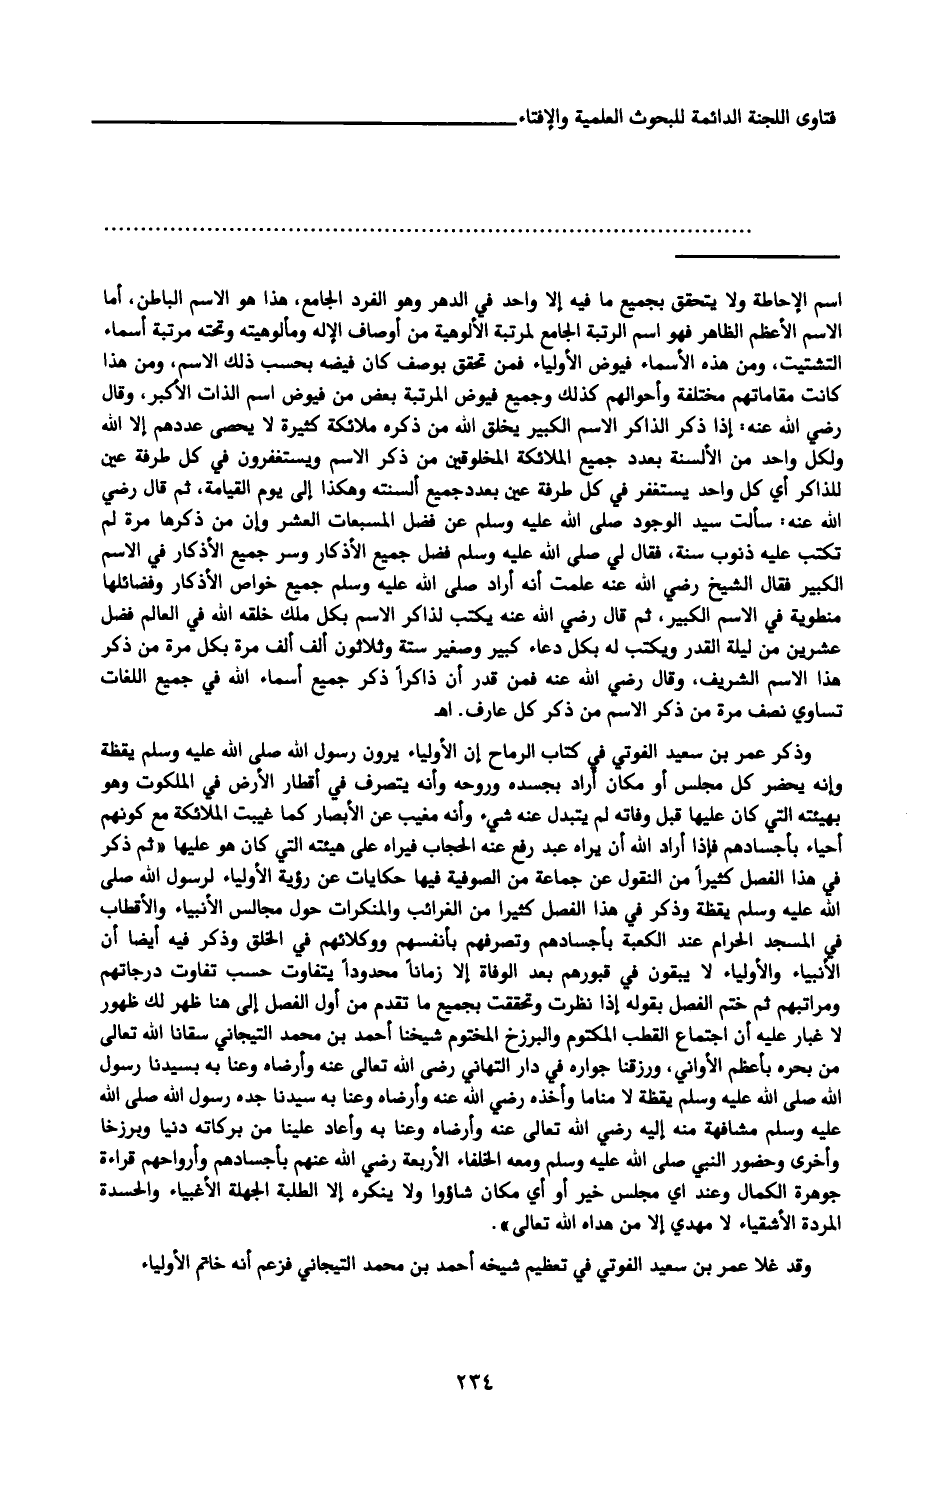 فتاوى اللجنة الدائمة للبحوث العلمية والإفتاء
................................................................................
اسم الإحاطة ولا يتحقق بجميع ما فيه إلا واحد في الدهر وهو الفرد الجامع، هذا هو الاسم الباطن، أما
الاسم الأعظم الظاهر فهو اسم الرتبة الجامع لمرتبة الألوهية من أوصاف الإله ومألوهيته وتحته مرتبة أسماء
التشتيت، ومن هذه الأسماء فيوض الأولياء فمن تحقق بوصف كان فيضه بحسب ذلك الاسم، ومن هذا
كانت مقاماتهم مختلفة وأحوالهم كذلك وجميع فيوض المرتبة بعض من فيوض اسم الذات الأكبر، وقال
رضي الله عنه: إذا ذكر الذاكر الاسم الكبير يخلق الله من ذكره ملائكة كثيرة لا يحصى عددهم إلا الله
ولكل واحد من الألسنة بعدد جميع الملائكة المخلوقين من ذكر الاسم ويستغفرون في كل طرفة عين
للذاكر أي كل واحد يستغفر في كل طرفة عين بعددجميع ألسنته وهكذا إلى يوم القيامة، ثم قال رضي
الله عنه: سألت سيد الوجود صلى الله عليه وسلم عن فضل المسبعات العشر وإن من ذكرها مرة لم
تكتب عليه ذنوب سنة، فقال لي صلى الله عليه وسلم فضل جميع الأذكار وسر جميع الأذكار في الاسم
الكبير فقال الشيخ رضي الله عنه علمت أنه أراد صلى الله عليه وسلم جميع خواص الأذكار وفضائلها
منطوية في الاسم الكبير، ثم قال رضي الله عنه يكتب لذاكر الاسم بكل ملك خلقه الله في العالم فضل
عشرين من ليلة القدر ويكتب له بكل دعاء كبير وصغير ستة وثلاثون ألف ألف مرة بكل مرة من ذكر
هذا الاسم الشريف، وقال رضي الله عنه فمن قدر أن ذاكراً ذكر جميع أسماء الله في جميع اللغات
تساوي نصف مرة من ذكر الاسم من ذكر كل عارف. اهـ
وذكر عمر بن سعيد الفوتي في كتاب الرماح إن الأولياء يرون رسول الله صلى الله عليه وسلم يقظة
وإنه يحضر كل مجلس أو مكان أراد بجسده وروحه وأنه يتصرف في أقطار الأرض في الملكوت وهو
بهيئته التي كان عليها قبل وفاته لم يتبدل عنه شيء وأنه مغيب عن الأبصار كما غيبت الملائكة مع كونهم
أحياء بأجسادهم فإذا أراد الله أن يراه عبد رفع عنه الحجاب فيراه على هيئته التي كان هو عليها «ثم ذكر
في هذا الفصل كثيراً من النقول عن جماعة من الصوفية فيها حكايات عن رؤية الأولياء لرسول الله صلى
الله عليه وسلم يقظة وذكر في هذا الفصل كثيرا من الغرائب والمنكرات حول مجالس الأنبياء والأقطاب
في المسجد الحرام عند الكعبة بأجسادهم وتصرفهم بأنفسهم ووكلائهم في الخلق وذكر فيه أيضا أن
الأنبياء والأولياء لا يبقون في قبورهم بعد الوفاة إلا زماناً محدوداً يتفاوت حسب تفاوت درجاتهم
ومراتبهم ثم ختم الفصل بقوله إذا نظرت وتحققت بجميع ما تقدم من أول الفصل إلى هنا ظهر لك ظهور
لا غبار عليه أن اجتماع القطب المكتوم والبرزخ المختوم شيخنا أحمد بن محمد التيجاني سقانا الله تعالى
من بحره بأعظم الأواني، ورزقنا جواره في دار التهاني رضي الله تعالى عنه وأرضاه وعنا به بسيدنا رسول
الله صلى الله عليه وسلم يقظة لا مناما وأخذه رضي الله عنه وأرضاه وعنا به سيدنا جده رسول الله صلى الله
عليه وسلم مشافهة منه إليه رضي الله تعالى عنه وأرضاه وعنا به وأعاد علينا من بركاته دنيا وبرزخا
وأخرى وحضور النبي صلى الله عليه وسلم ومعه الخلفاء الأربعة رضي الله عنهم بأجسادهم وأرواحهم قراءة
جوهرة الكمال وعند اي مجلس خير أو أي مكان شاؤوا ولا ينكره إلا الطلبة الجهلة الأغبياء والحسدة
المردة الأشقياء لا مهدي إلا من هداه الله تعالى».
وقد غلا عمر بن سعيد الفوتي في تعظيم شيخه أحمد بن محمد التيجاني فزعم أنه خاتم الأولياء
٢٣٤